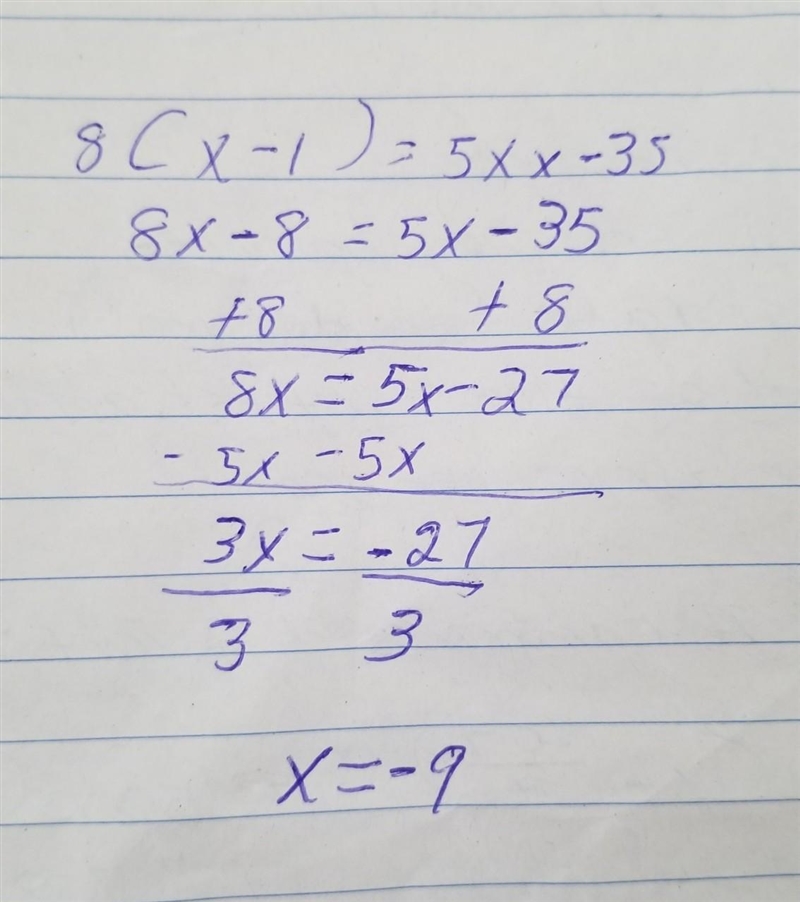 8(x-1)=5xx-35
8x-8=5x-35
+8 +8
8x=5x-27
-5x -5x
3x=-27
3 3
x=-9